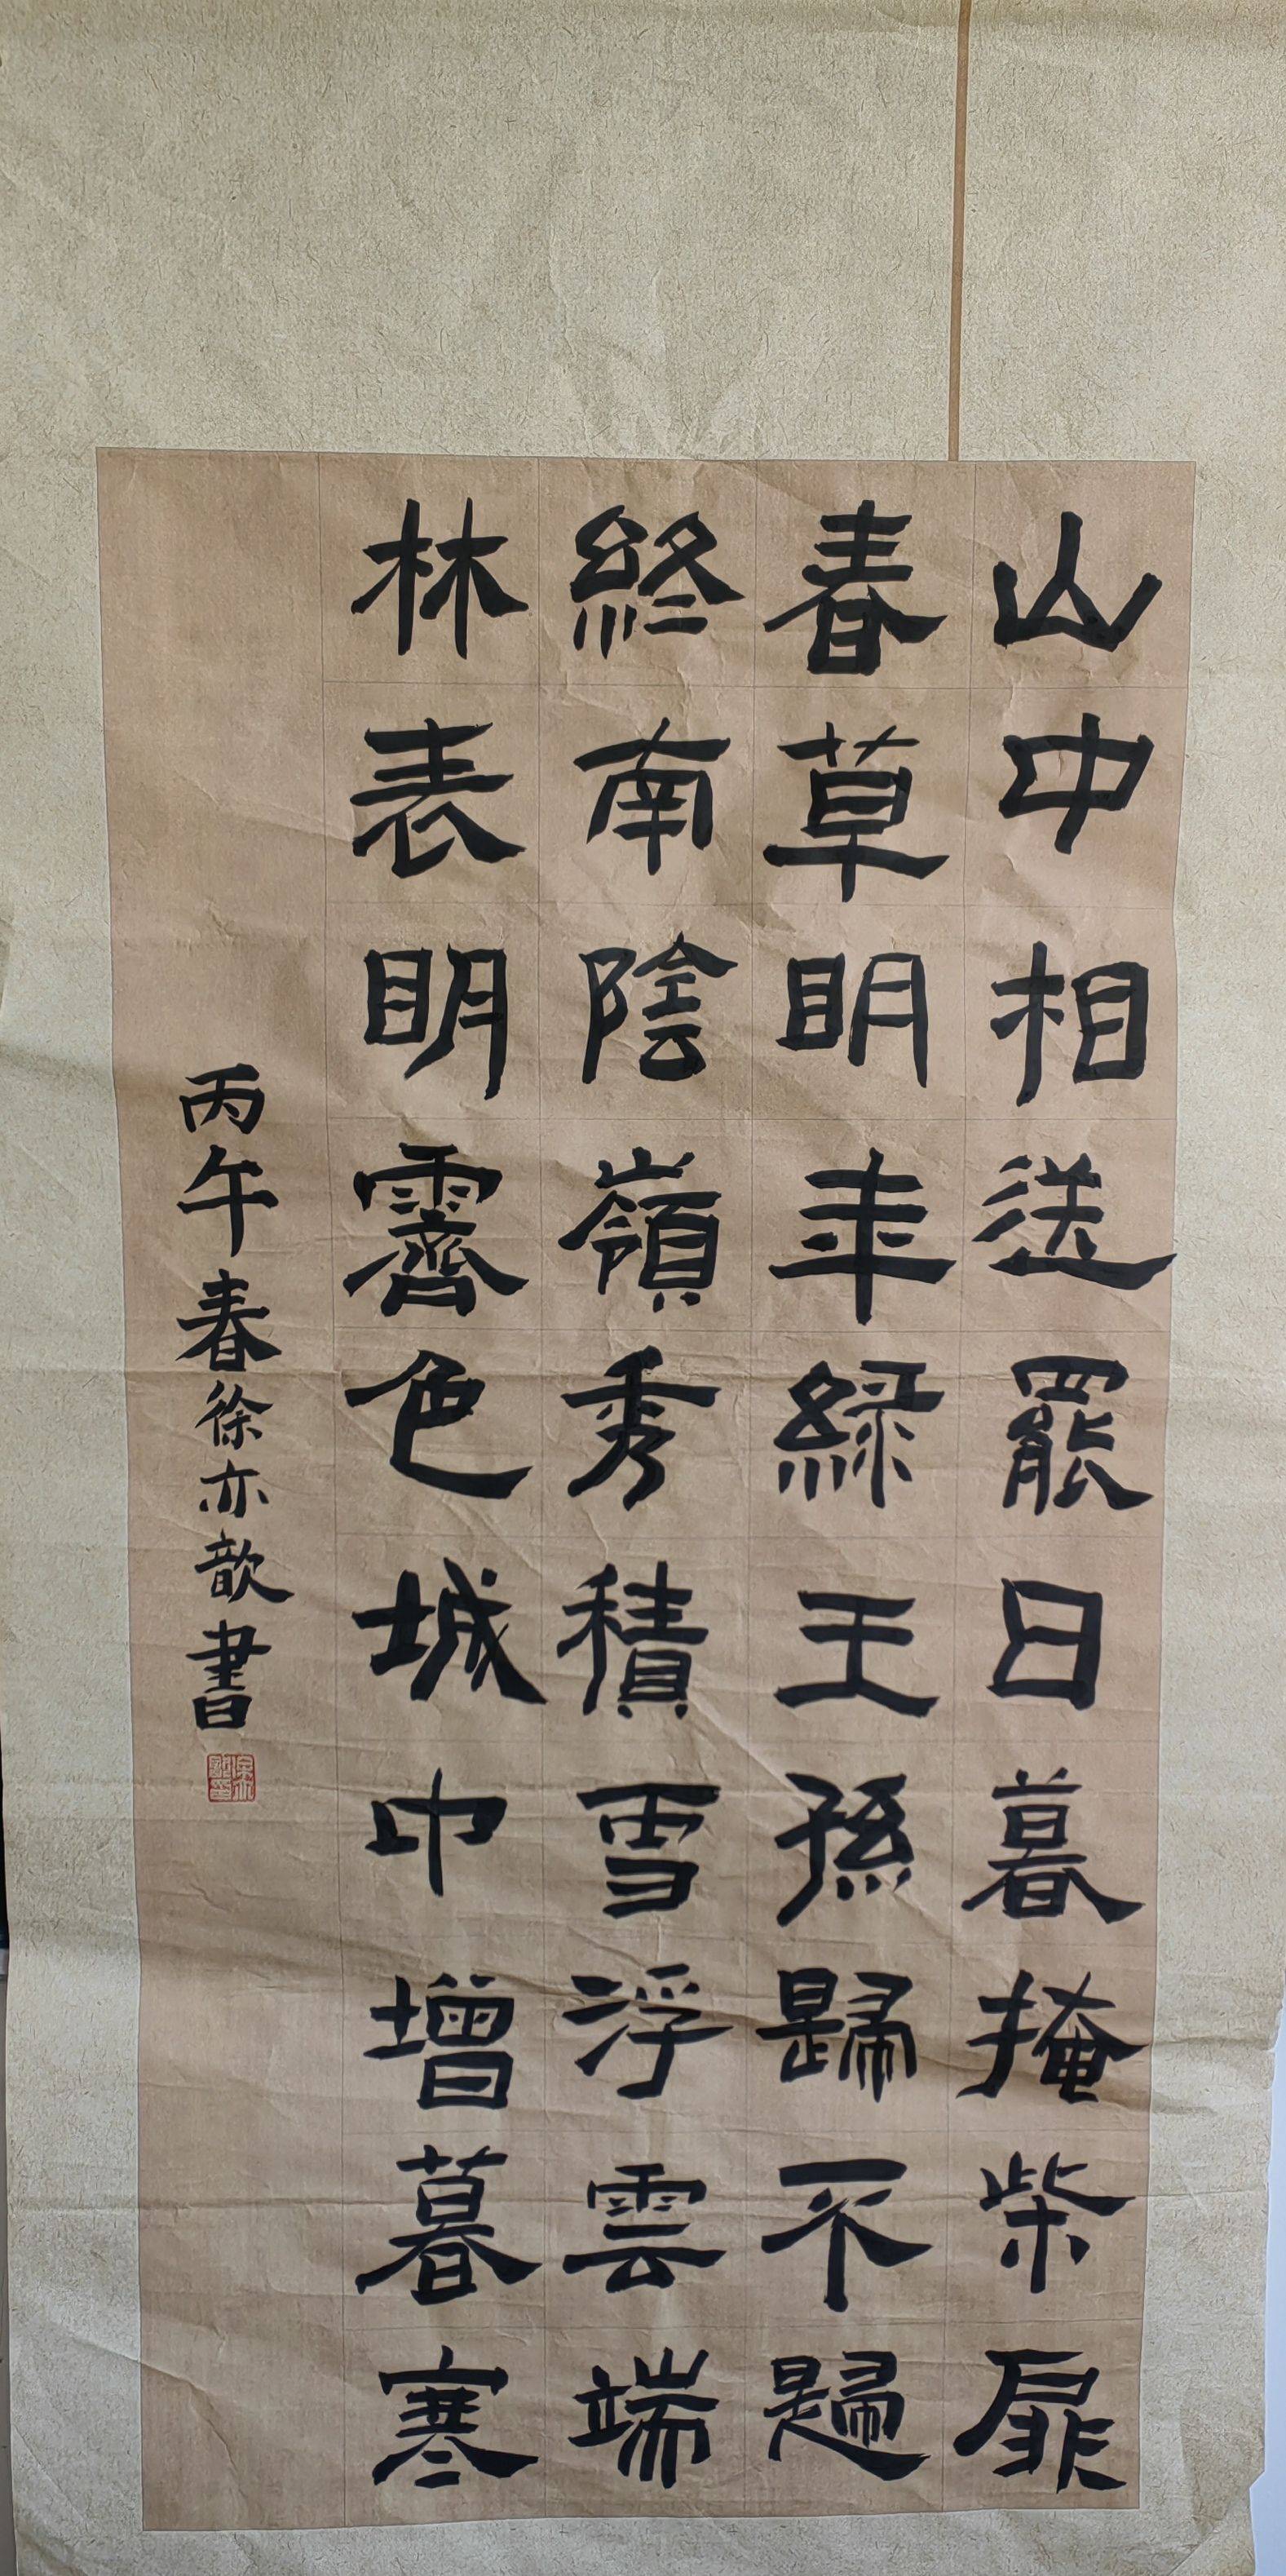 山中相送罷日暮掩柴扉
春草明年綠王孫歸不歸
終南陰嶺秀積雪浮雲端
林表明霽色城中增暮寒
丙午春徐亦歆書